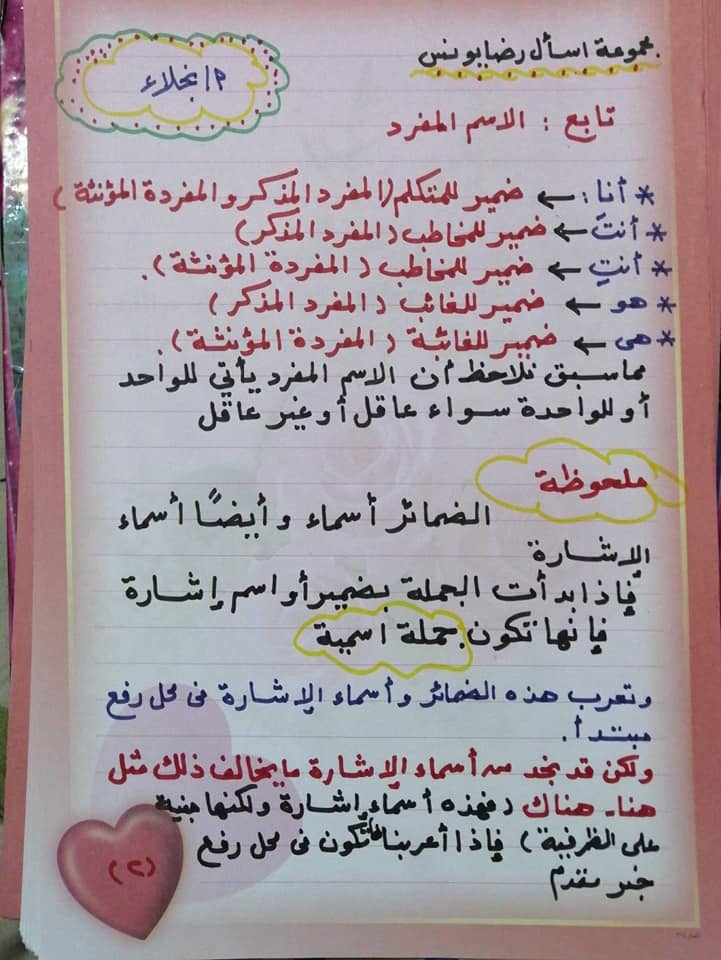 مجموعة اسأل رضا يونس
م/ نجلاء
تابع : الاسم المفرد
* أنا : ← ضمير للمتكلم (المفرد المذكر والمفردة المؤنثة)
* أنتَ ← ضمير للمخاطب (المفرد المذكر)
* أنتِ ← ضمير للمخاطب (المفردة المؤنثة).
* هو ← ضمير للغائب (المفرد المذكر)
* هى ← ضمير للغائبة (المفردة المؤنثة).
مماسبق نلاحظ أن الاسم المفرد يأتي للواحد
أو للواحدة سواء عاقل أو غير عاقل
ملحوظة
الضمائر أسماء وأيضًا أسماء
الإشارة
فإذا بدأت الجملة بضمير أو اسم إشارة
فإنها تكون جملة اسمية
وتعرب هذه الضمائر وأسماء الإشارة فى محل رفع
مبتدأ.
ولكن قد نجد من أسماء الإشارة ما يخالف ذلك مثل
هنا - هناك (فهذه أسماء إشارة ولكنها مبنية
على الظرفية) فإذا أعربناها تكون فى محل رفع
خبر مقدم
(٢)